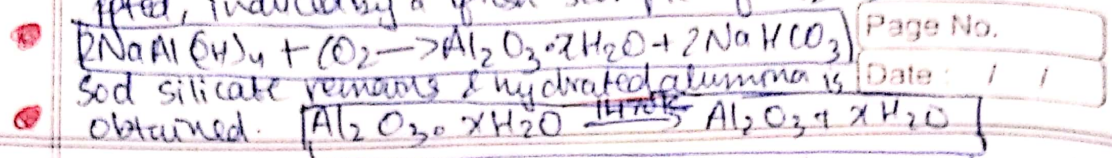 Page No.
2NaAl(OH)4 + CO2 —> Al2O3.xH2O + 2NaHCO3
Sod silicate remains & hydrated alumina is
Date: / /
obtained. Al2O3.xH2O 1470K Al2O3 + xH2O